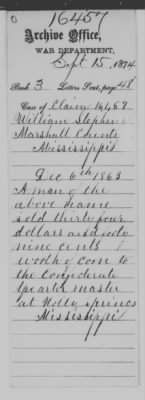 16457
Archive Office,
WAR DEPARTMENT,
Sept 15, 1874.
Book 3 Letters Sent, page 48
Case of Claim 16457
William Stephens
Marshall County
Mississippi
Dec 6th 1863
A man of the
above name
sold thirty four
dollars and forty
nine cents
worth of corn to
the Confederate
quarter master
at Holly Springs
Mississippi